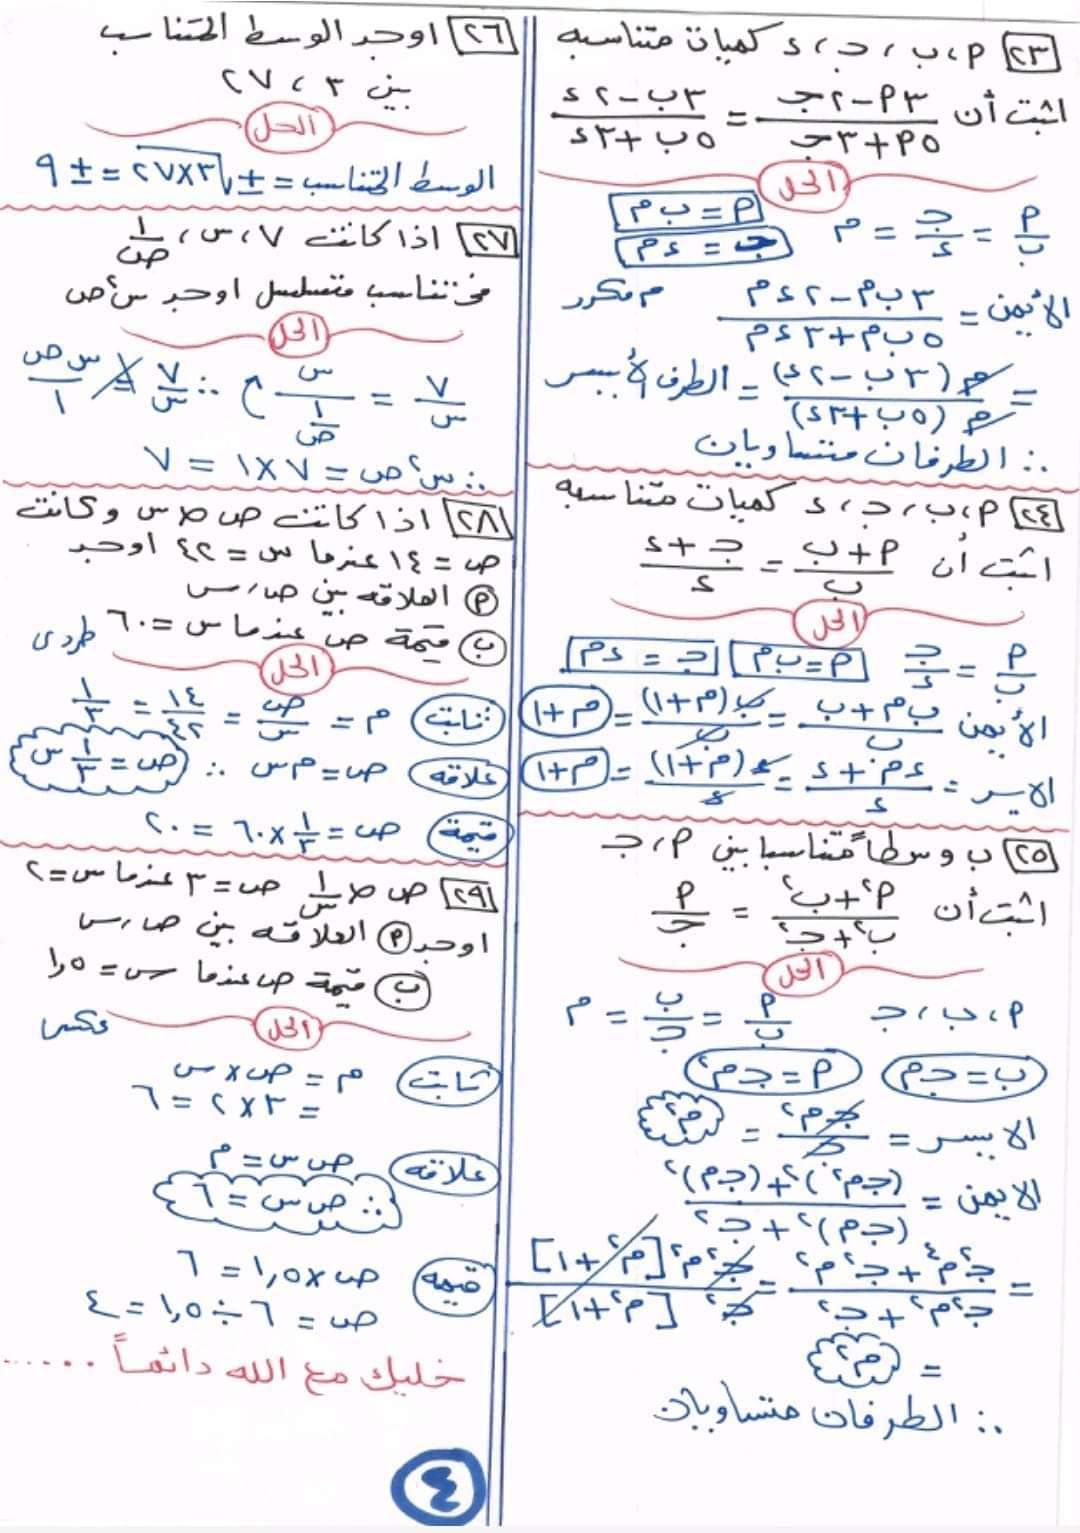 ٢٣ ٩، ب، جـ، ء كميات متناسبه
اثبت أن (٣٩ - ٢جـ)/(٥٩ + ٣جـ) = (٣ب - ٢ء)/(٥ب + ٣ء)
الحل
٩/ب = جـ/ء = م
٩ = ب م
جـ = ء م
الأيمن = (٣ب م - ٢ء م)/(٥ب م + ٣ء م) م مكرر
= م(٣ب - ٢ء)/م(٥ب + ٣ء) = الطرف الأيسر
∴ الطرفان متساويان
٢٤ ٩، ب، جـ، ء كميات متناسبه
اثبت أن (٩ + ب)/ب = (جـ + ء)/ء
الحل
٩/ب = جـ/ء ٩ = ب م جـ = ء م
الأيمن (ب م + ب)/ب = ب(م + ١)/ب = م + ١
الايسر = (ء م + ء)/ء = ء(م + ١)/ء = م + ١
٢٥ ب وسطاً متناسبا بين ٩، جـ
اثبت أن (٩² + ب²)/(ب² + جـ²) = ٩/جـ
الحل
٩، ب، جـ ٩/ب = ب/جـ = م
ب = جـ م ٩ = جـ م²
الايسر = جـ م²/جـ = م²
الايمن = ((جـ م²)² + (جـ م)²)/((جـ م)² + جـ²)
= (جـ² م⁴ + جـ² م²)/(جـ² م² + جـ²) = جـ² م² [م² + ١]/جـ² [م² + ١]
= م²
∴ الطرفان متساويان
٢٦ اوجد الوسط المتناسب
بين ٣، ٢٧
الحل
الوسط المتناسب = ± √٣×٢٧ = ± ٩
٢٧ اذا كانت ٧، س، ١/ص
في تناسب متسلسل اوجد س² ص
الحل
٧/س = س/(١/ص) ∴ ٧/س = س ص/١
∴ س² ص = ٧ × ١ = ٧
٢٨ اذا كانت ص ∝ س وكانت
ص = ١٤ عندما س = ٤٢ اوجد
٩ العلاقه بين ص، س
ب قيمة ص عندما س = ٦٠
طردى
الحل
ثابت م = ص/س = ١٤/٤٢ = ١/٣
علاقه ص = م س ∴ ص = ١/٣ س
قيمة ص = ١/٣ × ٦٠ = ٢٠
٢٩ ص ∝ ١/س ص = ٣ عندما س = ٢
اوجد ٩ العلاقه بين ص، س
ب قيمة ص عندما س = ١,٥
عكسى
الحل
ثابت م = ص × س
= ٣ × ٢ = ٦
علاقه ص س = م
∴ ص س = ٦
قيمه ص × ١,٥ = ٦
ص = ٦ ÷ ١,٥ = ٤
خليك مع الله دائماً ......
٤